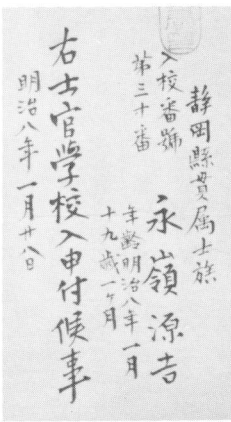 静岡縣貫属士族
入校番號
第三十番
永嶺源吉
年齢明治八年一月
十九歳一ヶ月
右士官學校入申付候事
明治八年一月廿八日